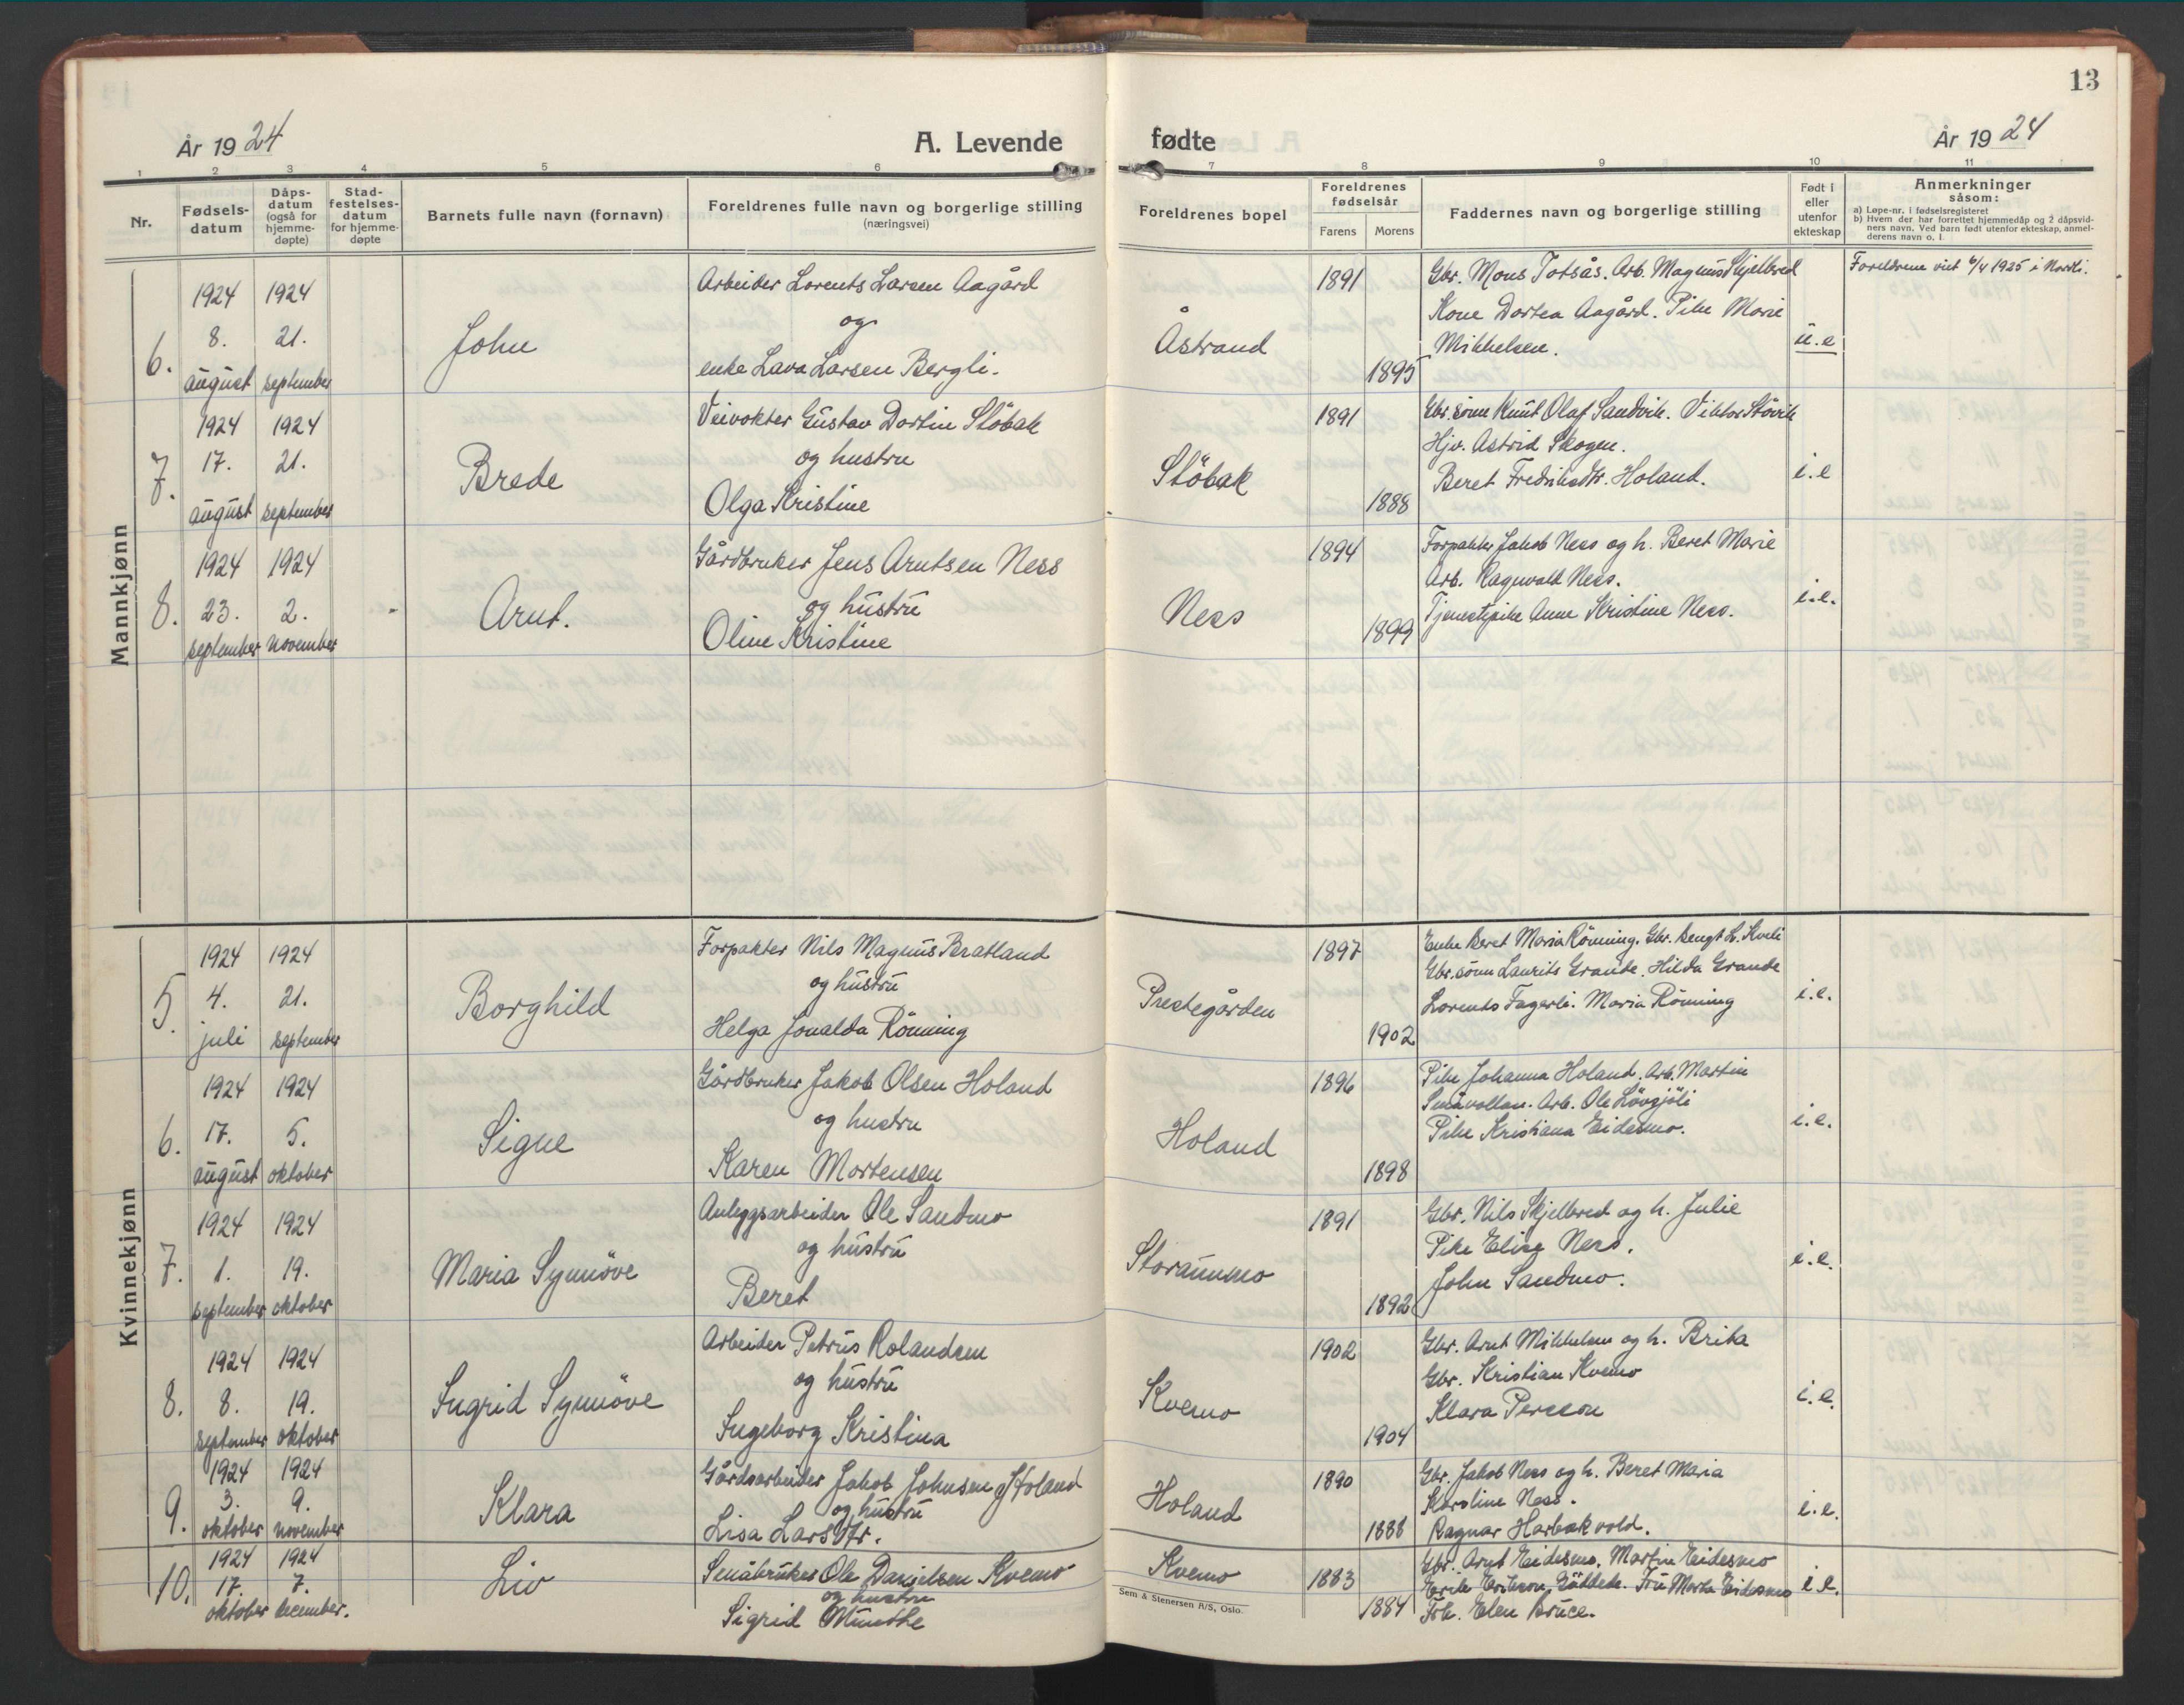 13
År 1924
A. Levende fødte
År 1924
1 2 3 4 5 6 7 8 9 10 11
Nr.
Fødsels-
datum
Dåps-
datum
(også for
hjemme-
døpte)
Stad-
festelses-
datum
for hjemme-
døpte
Barnets fulle navn (fornavn)
Foreldrenes fulle navn og borgerlige stilling
(næringsvei)
Foreldrenes bopel
Foreldrenes
fødselsår
Farens Morens
Faddernes navn og borgerlige stilling
Født i
eller
utenfor
ekteskap
Anmerkninger
såsom:
a) Løpe-nr. i fødselsregisteret
b) Hvem der har forrettet hjemmedåp og 2 dåpsvid-
ners navn. Ved barn født utenfor ekteskap, anmel-
derens navn o. l.
Mannkjønn
6.
1924
8.
august
1924
21.
september
John
Arbeider Lorents Larsen Aagård
og
enke Lava Larsen Bergli.
Åstrand
1891
1895
Gbr. Mons Totsås. Arb. Magnus Skjelbred
Kone Dortea Aagård. Pike Marie
Mikkelsen.
u.e
Foreldrene viet 6/4 1925 i Nordli.
7.
1924
17.
august
1924
21.
september
Brede
Veivokter Gustav Dortin Stöbak
og hustru
Olga Kristine
Stöbak
1891
1888
Gbr.sönn Knut Olaf Sandvik. Viktor Stövik
Hjv. Astrid Skogen.
Beret Fredriksdtr. Holand.
i.e
8.
1924
23.
september
1924
2.
november
Arnt.
Gårdbruker Jens Arntsen Ness
og hustru
Oline Kristine
Ness
1894
1899
Forpakter Jakob Ness og h. Beret Marie
Arb. Ragnvald Ness.
Tjenestepike Anne Kristine Ness.
i.e.
Kvinnekjønn
5.
1924
4.
juli
1924
21.
september
Borghild
Forpakter Nils Magnus Bratland
og hustru
Helga Jonalda Rönning
Prestegården
1897
1902
Enke Beret Maria Rönning. Gbr. Bengt L. Kveli
Gbr.sönn Laurits Grande. Hilda Grande
Lorents Fagerli. Maria Rönning
i.e.
6.
1924
17.
august
1924
5.
oktober
Signe
Gårdbruker Jakob Olsen Holand
og hustru
Karen Mortensen
Holand
1896
1898
Pike Johanna Holand. Arb. Martin
Småvollan. Arb. Ole Lövsjöli
Pike Kristiana Eidesmo.
i.e.
7.
1924
1.
september
1924
19.
oktober
Maria Synnöve
Anleggsarbeider Ole Sandmo
og hustru
Beret
Storaunmo
1891
1892
Gbr. Nils Skjelbred og h. Julie
Pike Elise Ness.
John Sandmo.
i.e.
8.
1924
8.
september
1924
19.
oktober
Ingrid Synnöve
Arbeider Petrus Rolandsen
og hustru
Ingeborg Kristina
Kvemo
1902
1904
Gbr. Arnt Mikkelsen og h. Brita
Gbr. Kristian Kvemo
Klara Persson
i.e.
9.
1924
3.
oktober
1924
9.
november
Klara
Gårdsarbeider Jakob Johnsen Holand
og hustru
Lisa Larsdtr.
Holand
1890
1888
Gbr. Jakob Ness og h. Beret Maria
Karoline Ness.
Ragnar Harbakvold.
i.e.
10.
1924
17.
oktober
1924
7.
december.
Liv
Småbruker Ole Danielsen Kvemo
og hustru
Sigrid Munthe
Kvemo
1883
1884
Gbr. Arnt Eidesmo. Martin Eidesmo
Erik Erikson, Gäddede. Fru Marta Eidesmo
Frk. Elen Bruce.
i.e.
Sem & Stenersen A/S, Oslo.